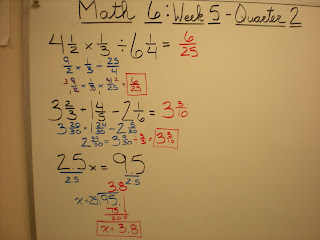 Math 6: Week 5 - Quarter 2
4 1/2 × 1/3 ÷ 6 1/4 = 6/25
9/2 × 1/3 ÷ 25/4
9/2 × 1/3 × 4/25 = 6/25
3 2/3 + 1 4/5 - 2 1/6 = 3 3/10
3 20/30 + 1 24/30 - 2 5/30
= 3 9/30 ÷ 3/3 = 3 3/10
2.5x = 9.5
2.5 2.5
3.8
x = 25 95.
75
200
x = 3.8